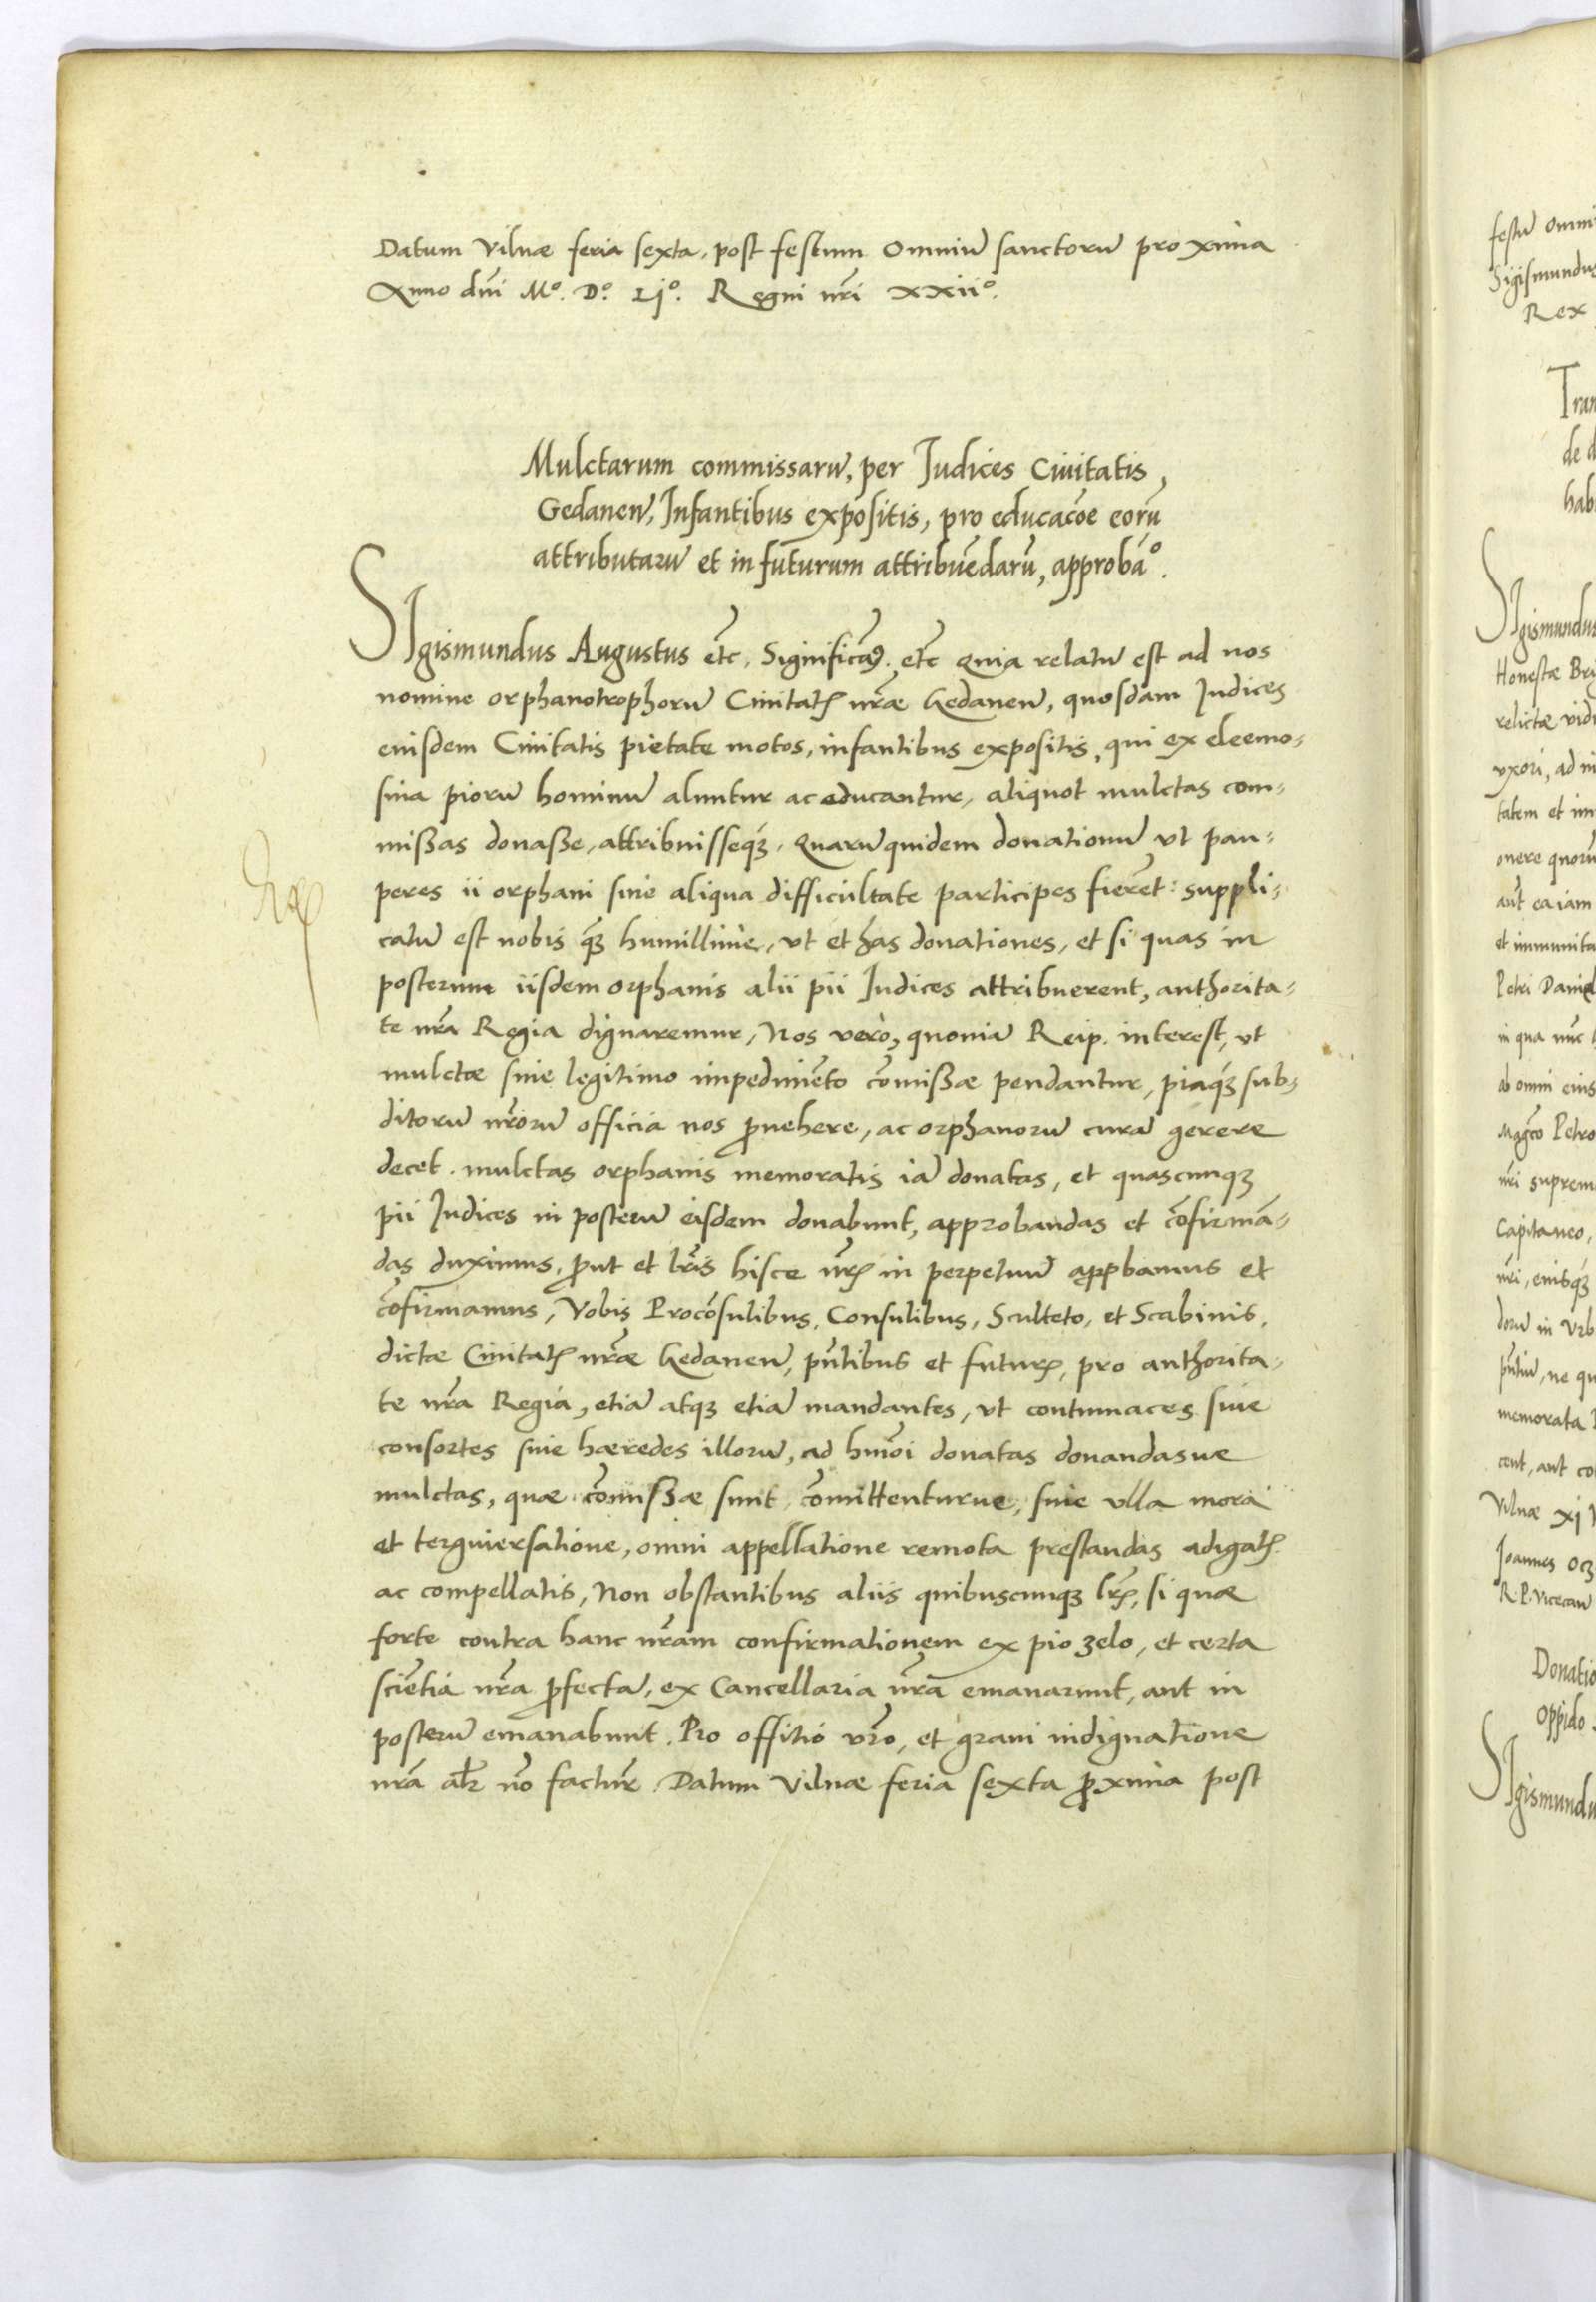 Datum Vilnæ feria sexta, post festum Omniũ sanctorũ proxima
Anno dñi Mº. Dº. Ljº. Regni nr̃i xxiiº.
Mulctarum commissarũ, per Judices Ciuitatis,
Gedaneñ, Infantibus expositis, pro educacõe eorũ
attributarũ et in futurum attribuẽdarũ, approbãº.
SIgismundus Augustus et͠c, Significãꝰ. et͠c Quia relatũ est ad nos
nomine orphanotrophorũ Ciuitatꝭ nr̃æ Gedaneñ, quosdam Judices
eiusdem Ciuitatis pietate motos, infantibus expositis, qui ex eleemo-
sina piorũ hominũ aluntur ac educantur, aliquot mulctas com-
mißas donaße, attribuisseqꝫ. Quarũ quidem donationũ vt pau-
peres ii orphani sine aliqua difficultate participes fierẽt: suppli-
catũ est nobis qꝫ humillimè, vt et has donationes, et si quas in
posterum iisdem orphanis alii pii Judices attribuerent, authorita-
te nr̃a Regia dignaremur, Nos verò, quoniã Reip. interest, vt
mulctæ sine legitimo impedimẽto cõmißæ pendantur, piaqꝫ sub-
ditorũ nr̃orũ officia nos ꝓuehere, ac orphanorũ curã gerere
decet. mulctas orphanis memoratis iã donatas, et quascunqꝫ
pii Judices in posterũ eisdem donabunt, approbandas et cõfirmã-
das duximus, ꝓut et lr̃is hisce nr̃ꝭ in perpetuũ apꝓbamus et
cõfirmamus, Vobis Procõsulibus, Consulibus, Sculteto, et Scabinis,
dictæ Ciuitatꝭ nr̃æ Gedaneñ, pñtibus et futurꝭ, pro authorita-
te nr̃a Regia, etiã atqꝫ etiã mandantes, vt contumaces siue
consortes siue hæredes illorũ, ad hmõi donatas donandasue
mulctas, quæ cõmißæ sunt, cõmittenturue, sine vlla mora
et tergiuersatione, omni appellatione remota prestandas adigatꝭ
ac compellatis, Non obstantibus aliis quibuscunqꝫ lr̃ꝭ, si quæ
forte contra hanc nr̃am confirmationem ex pio zelo, et certa
sciẽtia nr̃a ꝓfectã, ex Cancellaria nr̃a emanarunt, aut in
posterũ emanabunt. Pro offitio vr̃o, et graui indignatione
nr̃a alr̃ nõ facturꝭ. Datum Vilnæ feria sexta ꝓxima post
festũ omni
Sigismundus
Rex
Tran
de d
hab
SIgismundus
Honestæ Bri
relictæ vidu
vxori, ad in
tatem et im
onere quorũ
aut ea iam
et immunita
Petri Daniel
in qua nũc
ab omni eius
Magco Petro
nr̃i suprem
Capitaneo,
nr̃i, eiusqꝫ
dorũ in Vrb
pñtiũ, ne qu
memorata
cent, aut co
Vilnæ xj
Joannes Ocz
R. P. Vicecan
Donatio
oppido
SIgismundu